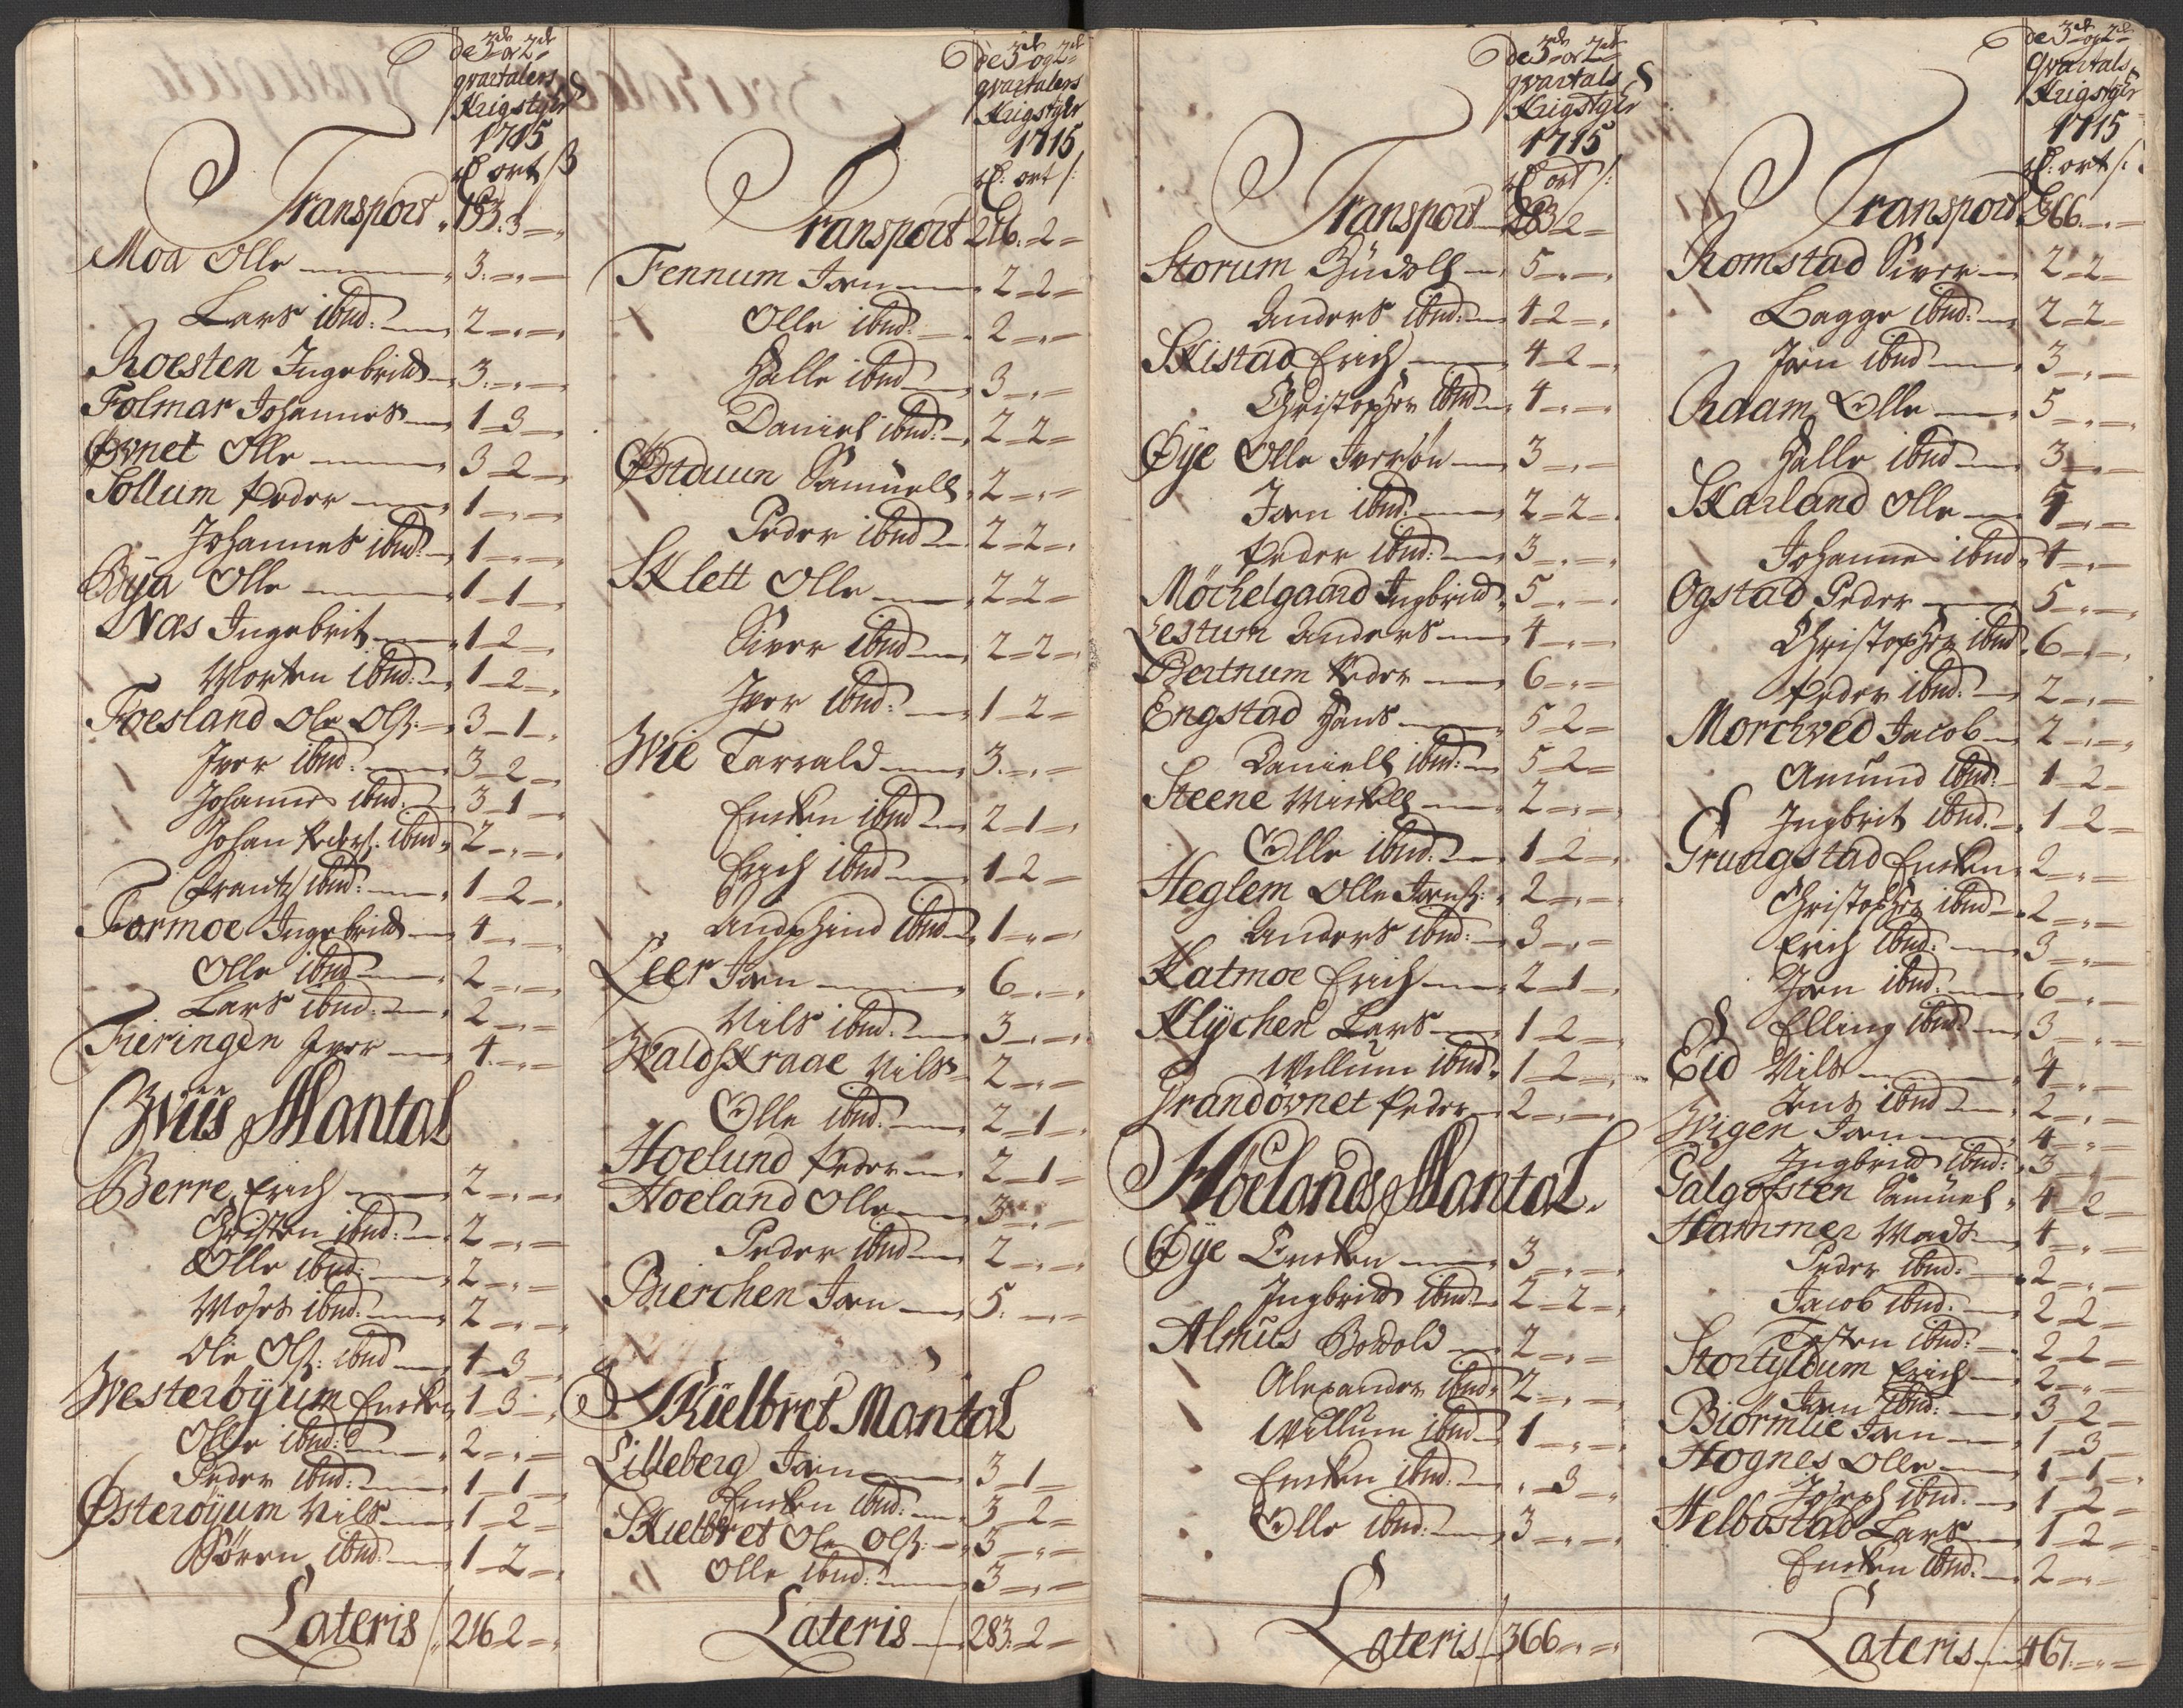 de 3de og 2de
qvartalers
Krigstyhr
1715
rd ort ß
Transport 163 : 3 –
Moa Olle 3 – –
Lars ibnd: 2 – –
Roesten Ingebrict 3 – –
Folmar Johannes 1 – 3 –
Øvnet Olle 3 – 2 –
Sollum Peder 1 – –
Johannes ibnd: 1 – –
Bÿa Olle 1 – 1 –
Næs Ingebrit 1 – 2 –
Morten ibnd: 1 – 2 –
Foesland Ole Olß: 3 – 1 –
Iver ibnd: 3 – 2 –
Johannes ibnd: 3 – 1 –
Johan Pederß: ibnd 2 – –
Frantz ibnd: 1 – 2 –
Formoe Ingebrict 4 – –
Olle ibnd 2 – –
Lars ibnd: 2 – –
Fieringen Iver 4 – –
Wiis Mantal
Berre Erich 2 – –
Christen ibnd: 2 – –
Olle ibnd: 2 – –
Mohrs ibnd: 2 – –
Ole Olß: ibnd 1 – 3 –
Westerbÿum Encken 1 – 3 –
Olle ibnd: 2 – –
Peder ibnd: 1 – 1 –
Østerøÿum Nils 1 – 2 –
Sören ibnd: 1 – 2 –
Lateris 216 2 –
de 3de og 2de
qvartalers
Krigstyhr
1715
rd: ort ß:
Transport 216 : 2 –
Fennum Jon 2 – 2 –
Olle ibnd: 2 – –
Halle ibnd 3 – –
Daniel ibnd: 2 – 2 –
Østduun Samuell 2 – –
Peder ibnd 2 – 2 –
Sklett Olle 2 – 2 –
Siver ibnd 2 – 2 –
Iver ibnd: 1 – 2 –
Wie Tarrald 3 – –
Encken ibnd 2 – 1 –
Erich ibnd 1 – 2 –
Andphind ibnd 1 – –
Leer Jon 6 – –
Nils ibnd: 3 – –
Waldskraae Nils 2 – –
Olle ibnd: 2 – 1 –
Hoelund Peder 2 – 1 –
Hoeland Olle 3 – –
Peder ibnd 2 – –
Bierchen Jon 5 – –
Skielbret Mantal
Lilleberg Jon 3 – 1 –
Encken ibnd: 3 – 2 –
Skielbret Ole Olß: 3 – –
Olle ibnd: 3 – –
Lateris 283 : 2 –
de 3de og 2de
qvartals
Krigstyhr
1715
rd ort ß:
Transport 283 2 –
Storum Gudolf 5 – –
Anders ibnd: 4 – 2 –
Skistad Erich 4 – 2 –
Christopher ibnd 4 – –
Øÿe Olle Iversøn 3 – –
Jon ibnd: 2 – 2 –
Peder ibnd: 3 – –
Möchelgaard Ingbrict 5 – –
Lestum Anders 4 – –
Bertnum Peder 6 – –
Engstad Hans 5 2 –
Daniell ibnd: 5 2 –
Steene Mickell 2 – –
Olle ibnd: 1 – 2 –
Heglem Olle Jonß: 2 – –
Anders ibnd: 3 – –
Katmoe Erich 2 – 1 –
Klÿchen Lars 1 – 2 –
Willum ibnd 1 – 2 –
Grandøvnet Peder 2 – –
Hoelands Mantal.
Øÿe Encken 3 – –
Ingbrict ibnd 2 – 2 –
Almüs Bodold 2 – –
Alexander ibnd 2 – –
Willum ibnd 1 – –
Encken ibnd: – 3 –
Olle ibnd: 3 – –
Lateris 366 – –
de 3de og 2de
qvartals
Krigstyhr
1715
rd: ort ß:
Transport 366 – –
Romstad Siver 2 – 2 –
Bagge ibnd: 2 – 2 –
Jon ibnd 3 – –
Raam Olle 5 – –
Halle ibnd 3 – –
Skarland Olle 4 – –
Johannes ibnd 4 – –
Ogstad Peder 5 – –
Christopher ibnd 6 – –
Peder ibnd: 2 – –
Morchved Jacob 2 – –
Amund ibnd 1 – 2 –
Ingbrit ibnd: 1 – 2 –
Grungstad Encken 2 – –
Christopher ibnd 2 – –
Erich ibnd: 3 – –
Jon ibnd: 6 – –
Elling ibnd: 3 – –
Eid Nils 4 – –
Jens ibnd 2 – –
Wigen Jon 4 – –
Ingbrict ibnd: 3 – –
Galgofsten Samuel 4 – 2 –
Hammer Mads 4 – –
Peder ibnd: 2 – –
Jacob ibnd: 2 2 –
Tosten ibnd: 2 2 –
Stortyldum Erich 2 – –
Jon ibnd: 3 – 2 –
Biörmlie Jon 1 – 3 –
Hognes Olle 1 – 1 –
Joseph ibnd: 1 – 2 –
Helbostad Lars 1 – 2 –
Encken ibnd: 2 – –
Lateris 467 – –